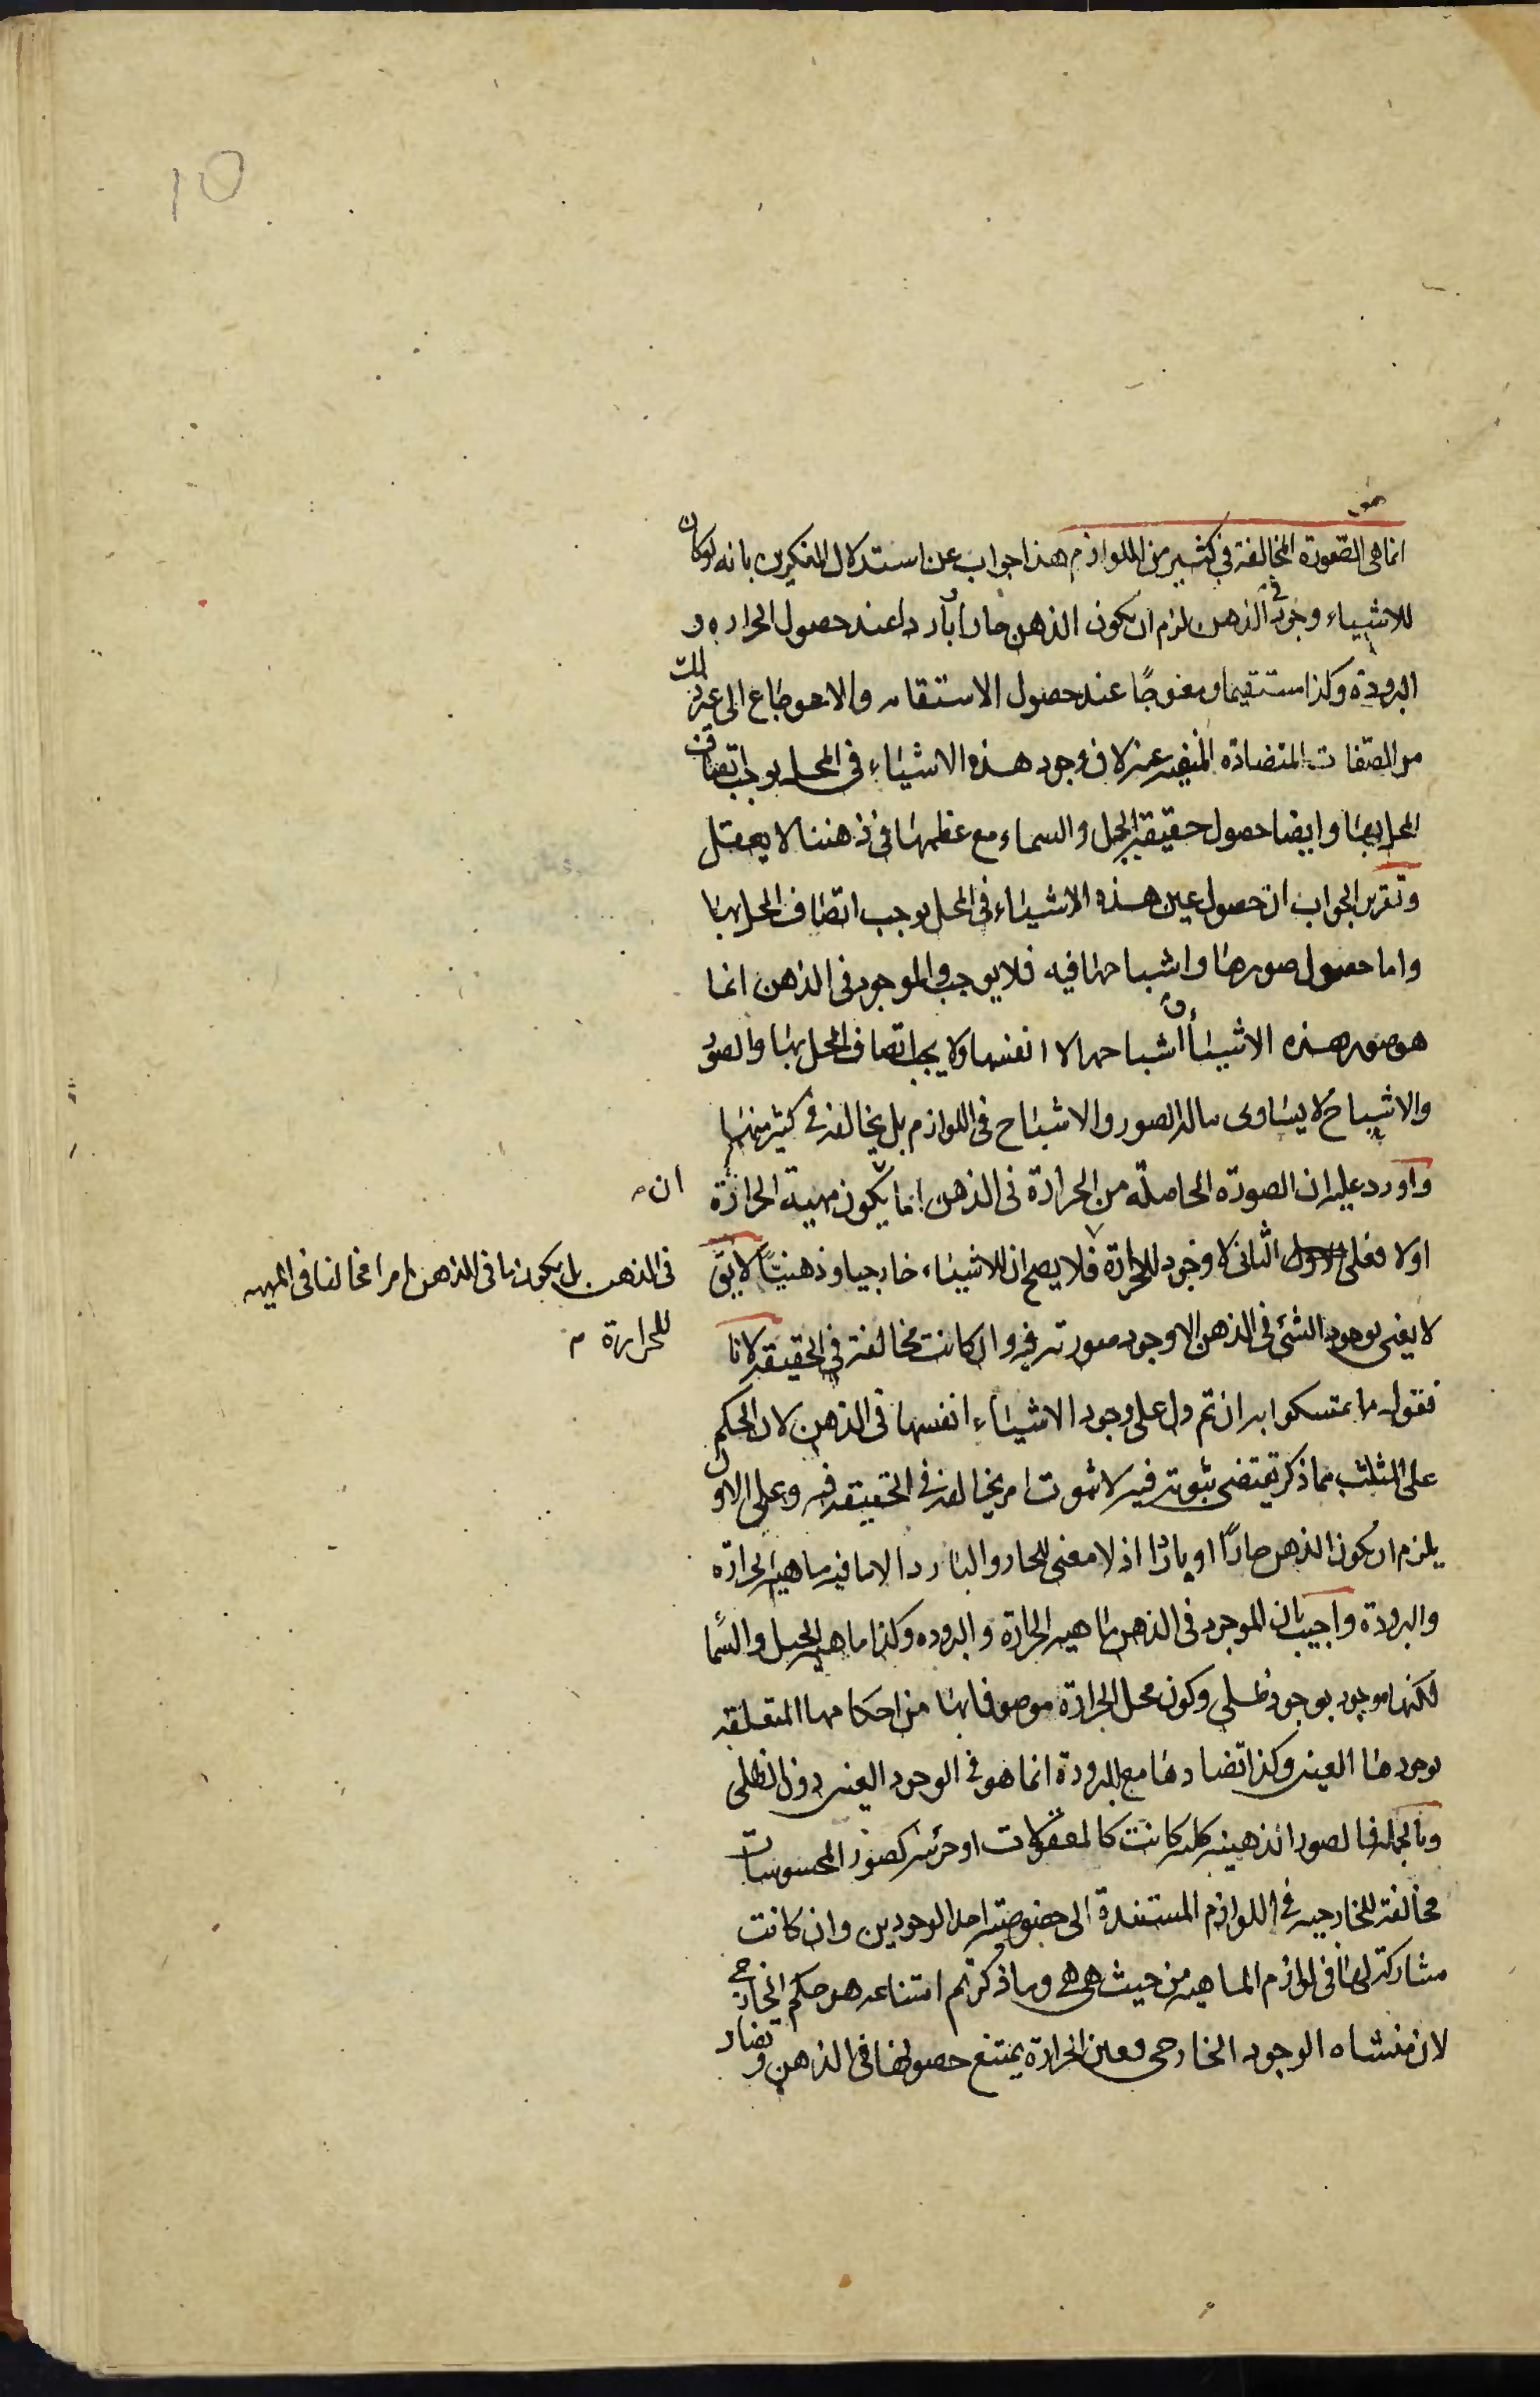 10
انما هى الصورة المخالفة في كثير من اللوازم هذا جواب عن استدلال المنكرين بانه لوكان
للاشياء وجود فى الذهن لزم ان يكون الذهن حارا باردا عند حصول الحراره و
البرودة وكذا مستقيما ومعوجًا عند حصول الاستقامه والاعوجاج الى غير ذلك
من الصفات المتضادة المنفيه عنه لان وجود هذه الاشياء فى المحل يوجب اتصاف
المحل بها وايضا حصول حقيقة الجبل والسماء مع عظمها فى ذهننا لا يعقل
وتقرير الجواب ان حصول عين هذه الاشياء فى المحل يوجب اتصاف المحل بها
واما حصول صورها واشباحها فيه فلا يوجب والموجود فى الذهن انما
هو صور هذه الاشياء و اشباحها لا انفسها ولا يجب اتصاف المحل بها والصور
والاشباح لا يساوى ماله الصور والاشباح فى اللوازم بل يخالفه فى كثير منها
واورد عليه ان الصورة الحاصلة من الحرارة فى الذهن اما ان يكون مهية الحرارة
اولا فعلى الثانى لا وجود للحرارة فلا يصح ان للاشياء خارجيا وذهنيًا لا يق
فى الذهن بل يكون ما فى الذهن امرا مخالفا فى المهيه
للحرارة
لا يعنى بوجود الشئ فى الذهن الا وجود صورته فيه وان كانت مخالفة فى الحقيقه لانا
نقول ما تمسكوا به ان تم دل على وجود الاشياء انفسها فى الذهن لان الحكم
على المثلث بما ذكر يقتضى ثبوته فيه لا ثبوت امر يخالفه فى الحقيقه فيه وعلى الاول
يلزم ان يكون الذهن حارًا او باردًا اذ لا معنى للحار والبارد الا ما فيه ماهية الحرارة
والبرودة واجيب بان الموجود فى الذهن ماهيه الحرارة والبروده وكذا ماهية الجبل والسما
لكنها موجود بوجود ظلى وكون محل الحرارة موصوفا بها من احكامها المتعلقه
بوجودها العينى وكذا تضادها مع البرودة انما هو فى الوجود العينى دون الظلى
وبالجمله فالصور الذهنيه كليه كانت كالمعقولات او جزئيه كصور المحسوسات
مخالفة للخارجيه فى اللوازم المستندة الى خصوصيه احد الوجودين وان كانت
مشاركة لها فى لوازم الماهيه من حيث هى هى وما ذكرتم امتناعه هو حكم الخارجى
لان منشاه الوجود الخارجى فعين الحرارة يمتنع حصولها فى الذهن وتضاد